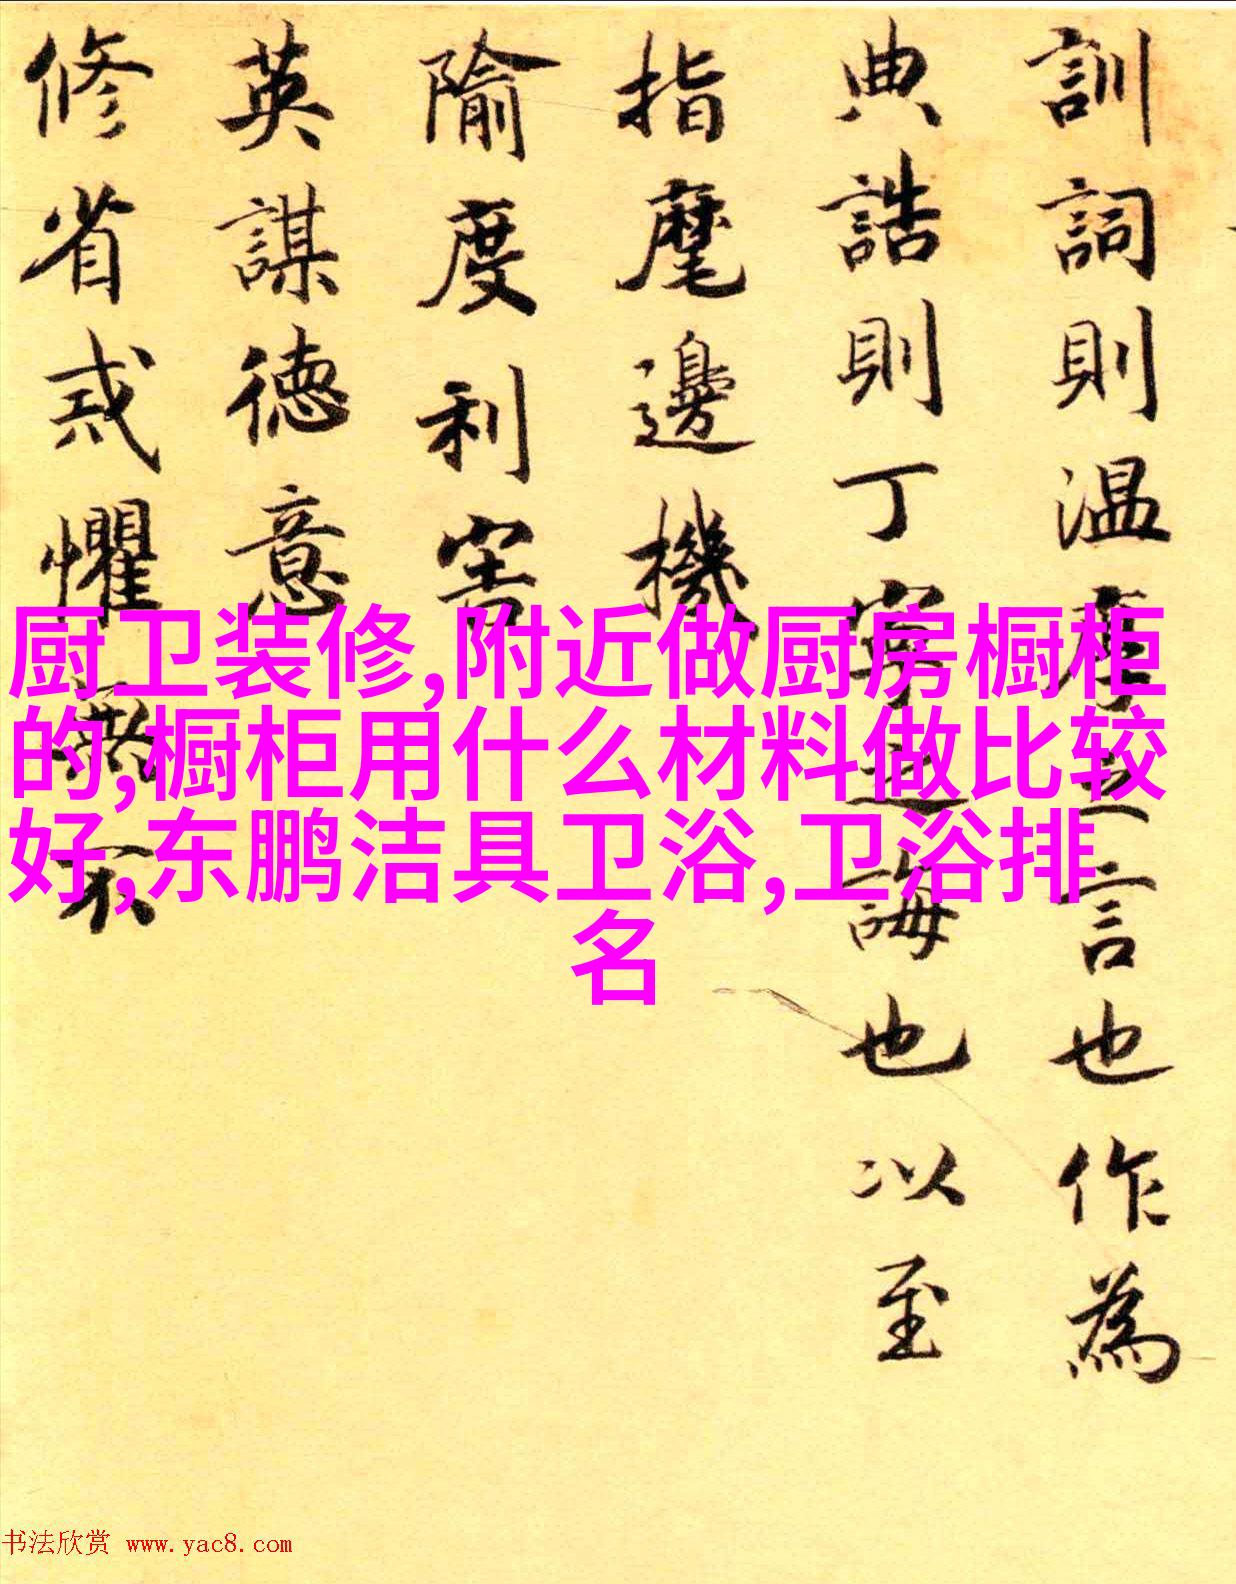 訓詞則温厚之言也作為
典誥則丁寧之誨也以至
指麾邊機
隃度利害
英謀德意
修省戒懼無不
厨卫装修,附近做厨房橱柜
的,橱柜用什么材料做比较
好,东鹏洁具卫浴,卫浴排
名
书法欣赏 www.yac8.com